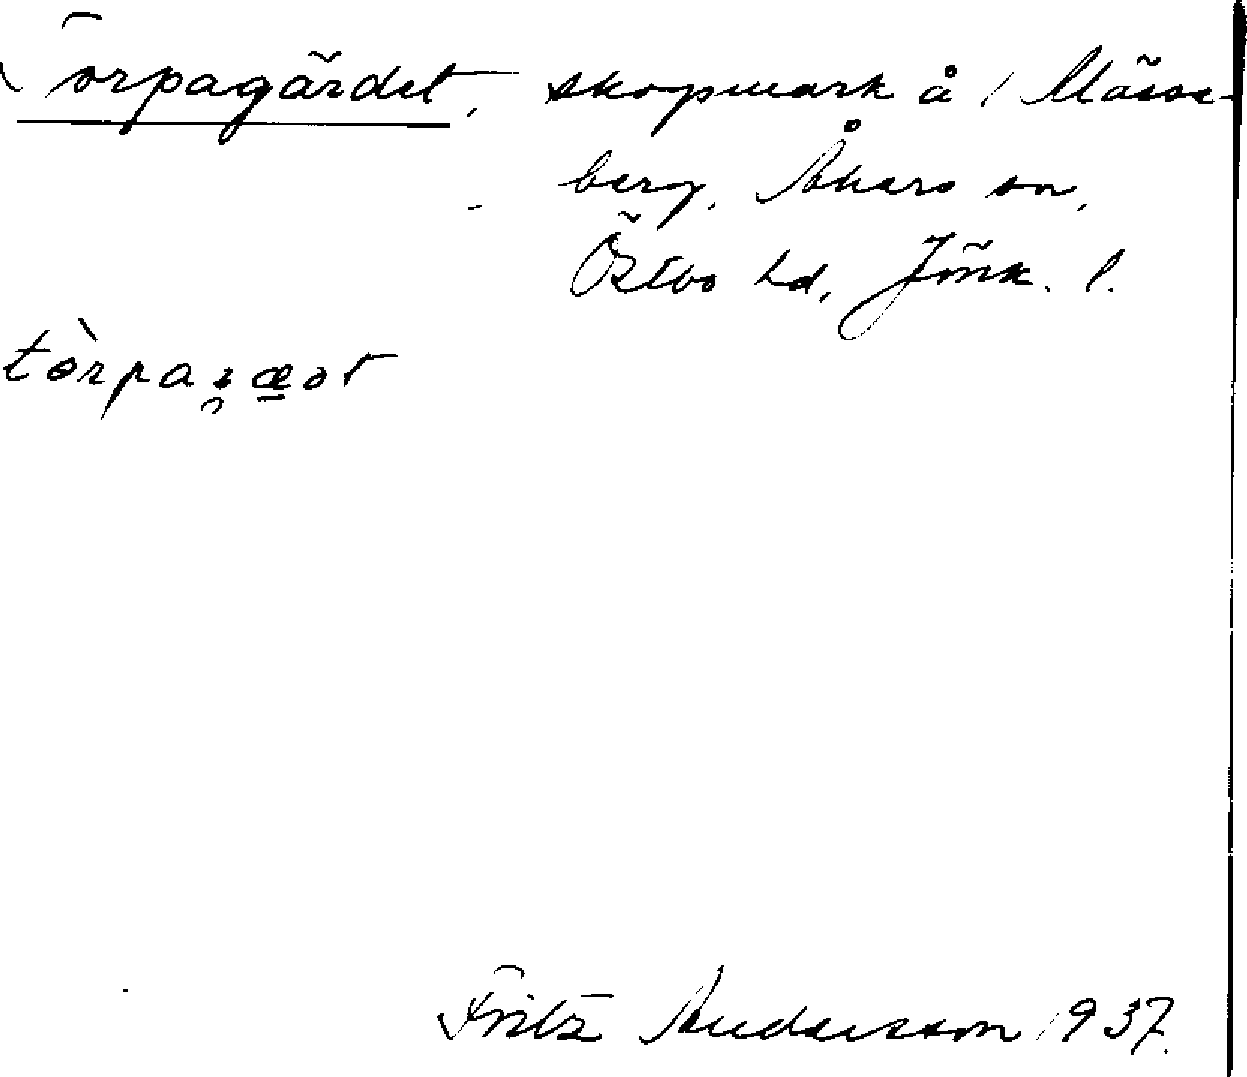 Torpagärdet, skogsmark å / Mässeberg,
Åkers sn,
Östbo hd, Jönk. l.
Fritz Andersson 1937.